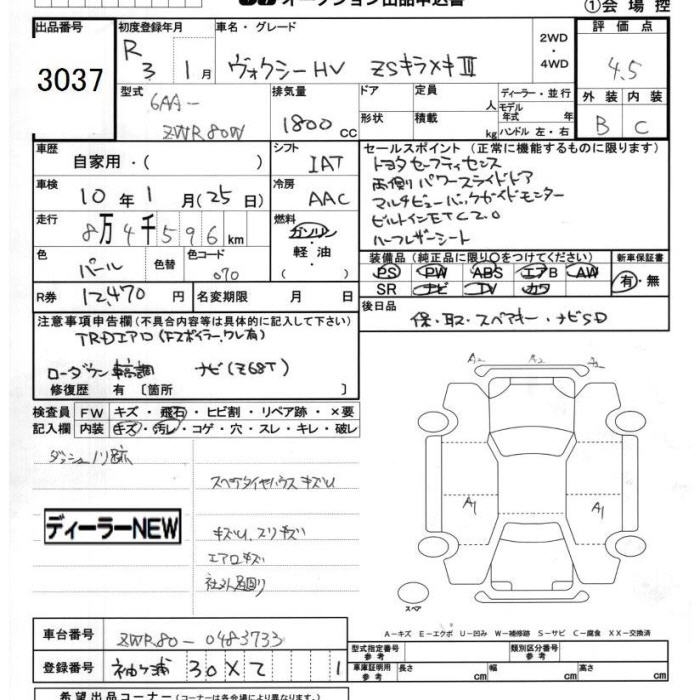 オークション出品申込書
①会場控
出品番号
3037
初度登録年月
R 3 1月
車名・グレード
ヴォクシーHV ZSキラメキⅢ
2WD・4WD
評価点
4.5
外装 内装
B C
型式
6AA-
ZWR80W
排気量
1800cc
ドア
形状
定員
人
積載
kg
ディーラー・並行
モデル年式
年
ハンドル 左・右
車歴
自家用・( )
シフト
IAT
車検
10年1月(25日)
冷房
AAC
走行
8万4千596km
燃料
ガソリン・軽油・( )
色
パール
色替
色コード
070
R券
12,470円
名変期限 月 日
セールスポイント(正常に機能するものに限ります)
トヨタセーフティセンス
両側パワースライドドア
マルチビューバックガイドモニター
ビルトインETC2.0
ハーフレザーシート
装備品(純正品に限り○をつけてください)
PS PW ABS エアB AW
SR ナビ TV カワ
新車保証書
有・無
後日品
保・取・スペアキー・ナビSD
注意事項申告欄(不具合内容等は具体的に記入して下さい)
TRDエアロ(Fスポイラー、ワレ有)
ローダウン 車高調 ナビ(Z68T)
修復歴 有〔箇所 〕
検査員記入欄
FW キズ・飛石・ヒビ割・リペア跡・×要
内装 キズ・汚レ・コゲ・穴・スレ・キレ・破レ
ダッシュノリ跡
スペアタイヤハウスキズU
ディーラーNEW
キズU、スリキズ
エアロキズ
社外足回り
A2 A2 A2
A1 A1
スペア
A-キズ E-エクボ U-凹み W-補修跡 S-サビ C-腐食 XX-交換済
車台番号
ZWR80-0483733
登録番号
袖ヶ浦 30 X て 1
型式指定番号
参考
類別区分番号
参考
車庫証明用
参考
長さ cm
幅 cm
高さ cm
希望出品コーナー(コーナーは各会場により異なります。)